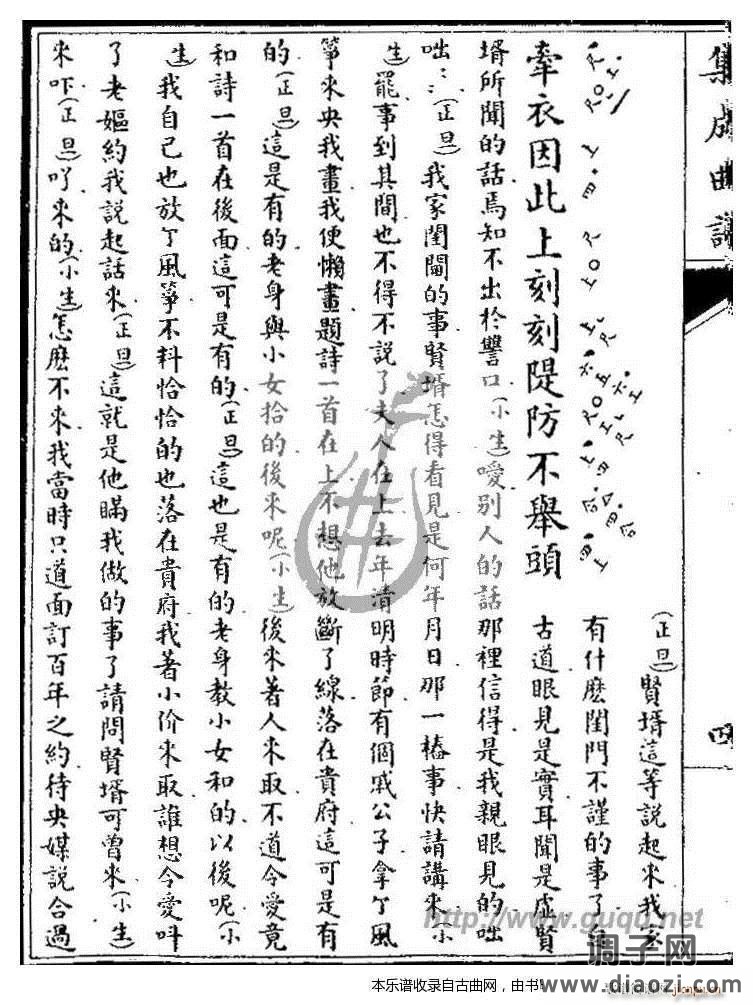 集成曲譜
四
牽衣因此上刻刻隄防不舉頭
(正旦)賢壻這等說起來我家
有什麽閨門不謹的事了自
古道眼見是實耳聞是虛賢
壻所聞的話焉知不出於讐口(小生)噯別人的話那裡信得是我親眼見的咄
咄(正旦)我家閨閫的事賢壻怎得看見是何年月日那一樁事快請講來(小
生)罷事到其間也不得不說了夫人在上去年清明時節有個戚公子拿了風
箏來央我畫我便懶畫題詩一首在上不想他放斷了線落在貴府這可是有
的(正旦)這是有的老身與小女拾的後來呢(小生)後來著人來取不道令愛竟
和詩一首在後面這可是有的(正旦)這也是有的老身教小女和的以後呢(小
生)我自己也放了風箏不料恰恰的也落在貴府我著小价來取誰想令愛叫
了老嫗約我說起話來(正旦)這就是他瞞我做的事了請問賢壻可曾來(小生)
來吓(正旦)吖來的(小生)怎麽不來我當時只道面訂百年之約待央媒說合過
http://www.guqu.net
调子网
www.diaozi.com
本乐谱收录自古曲网，由书